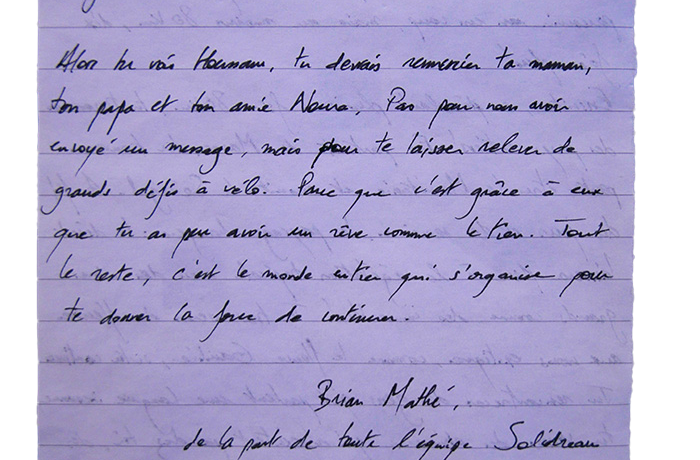 Alors tu vois Houssam, tu devrais remercier ta maman,
ton papa et ton amie Noura. Pas pour nous avoir
envoyé un message, mais pour te laisser relever de
grands défis à vélo. Parce que c'est grâce à eux
que tu as peu avoir un rêve comme le tien. Tout
le reste, c'est le monde entier qui s'organise pour
te donner la force de continuer.
Brian Mathé,
de la part de toute l'équipe Solidreau